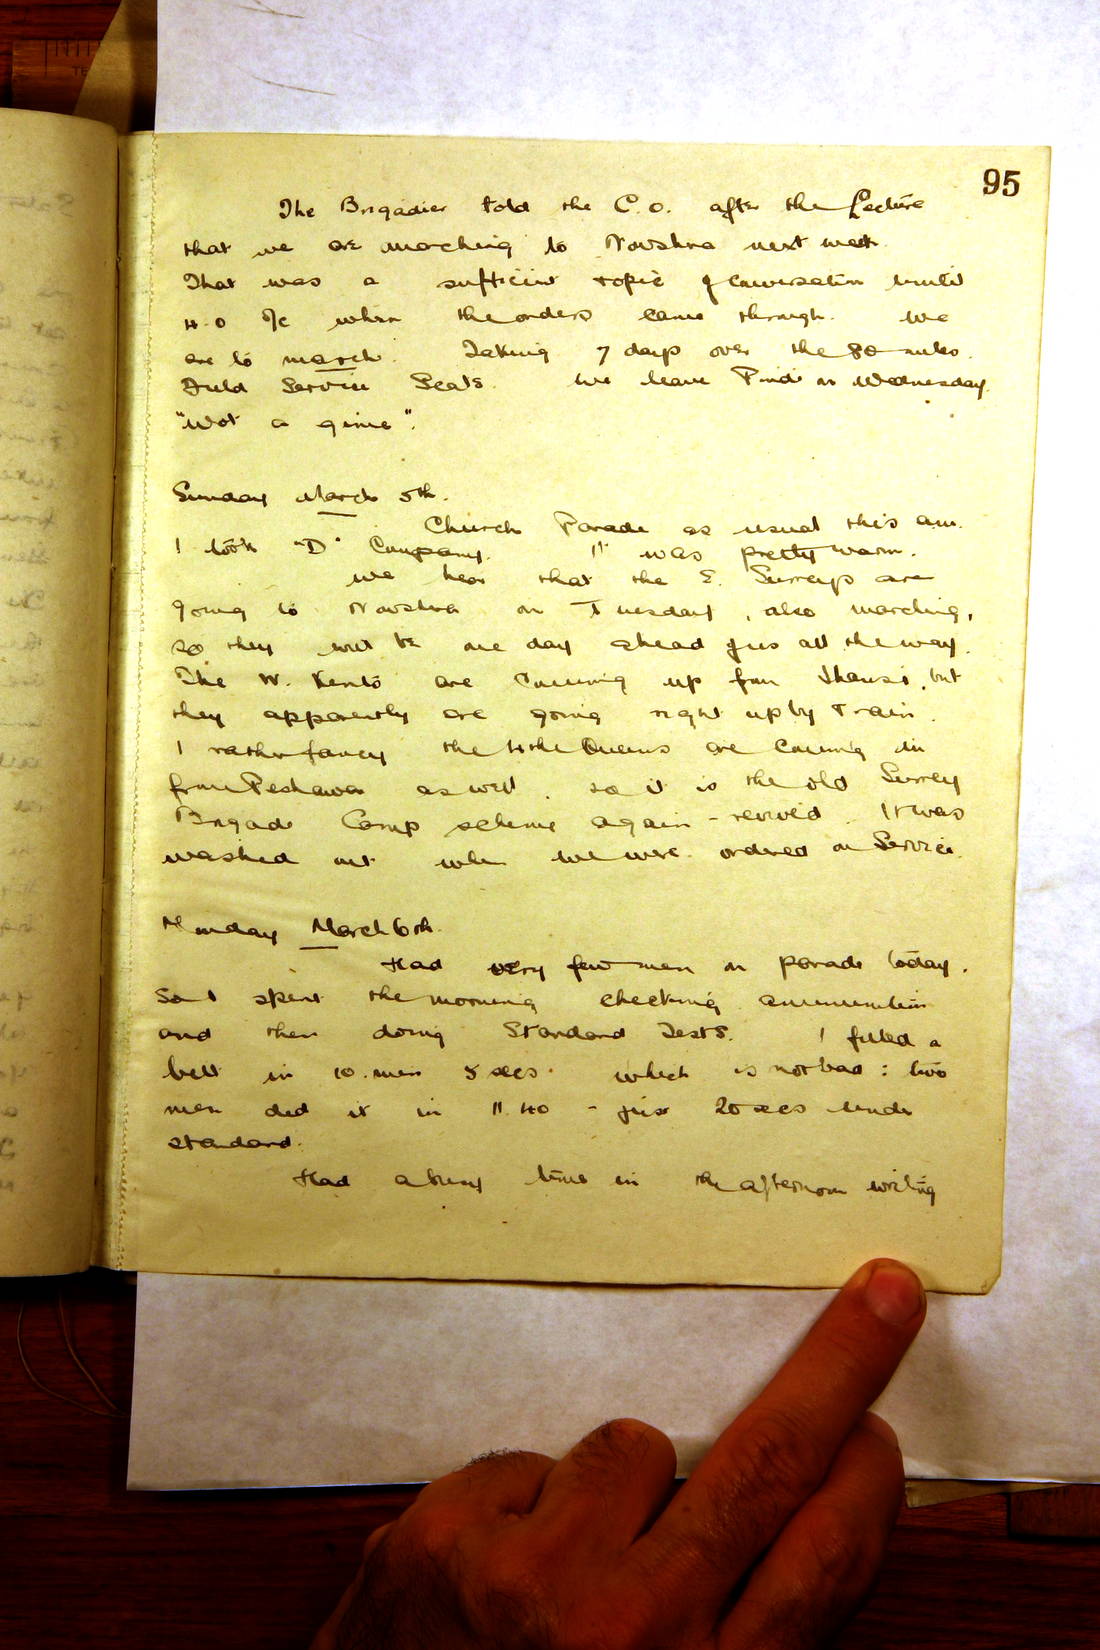 95
The Brigadier told the C.O. after the Lecture
that we are marching to Nowshra next week.
That was a sufficient topic of conversation until
4.0 o/c when the orders came through. We
are to march. Taking 7 days over the 80 miles.
Field Service Scals. We leave Pindi on Wednesday.
"Wot a gime".
Sunday March 5th.
Church Parade as usual this am.
I took "D" Company. It was pretty warm.
We hear that the E. Surreys are
going to Nowshra on Tuesday, also marching,
so they will be one day ahead of us all the way.
The W. Kents are coming up from Jhansi, but
they apparently are going right up by train.
I rather fancy the 4th Queens are coming in
from Peshawar as well. so it is the old Surrey
Brigade Camp scheme again - revived. It was
washed out when we were ordered on Service.
Monday March 6th.
Had very few men on parade today.
So I spent the morning checking ammunition
and then doing Standard Tests. I filled a
belt in 10. min 5 secs. which is not bad: two
men did it in 11.40 - just 20 secs under
standard.
Had a busy time in the afternoon writing